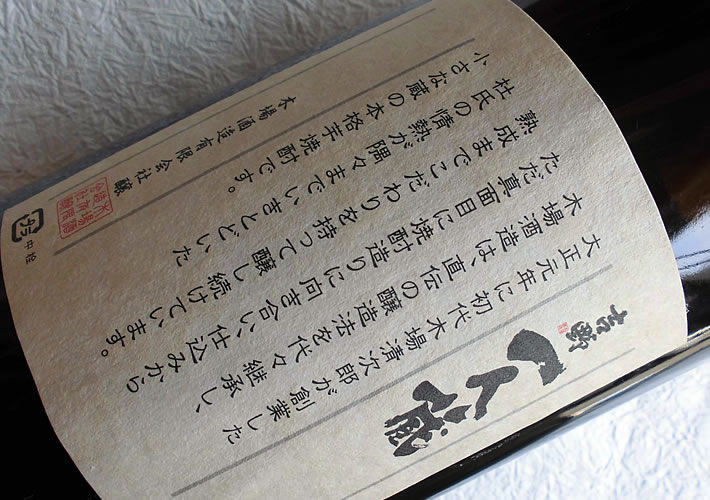 一人蔵
大正元年に初代木場清次郎が創業した
木場酒造は、直伝の醸造法を代々継承し、
ただ真面目に焼酎造りに向き合い、仕込みから
熟成までこだわりを持って醸し続けています。
杜氏の情熱が隅々までいきとどいた
小さな蔵の本格芋焼酎です。
木場酒造有限会社 醸
中栓